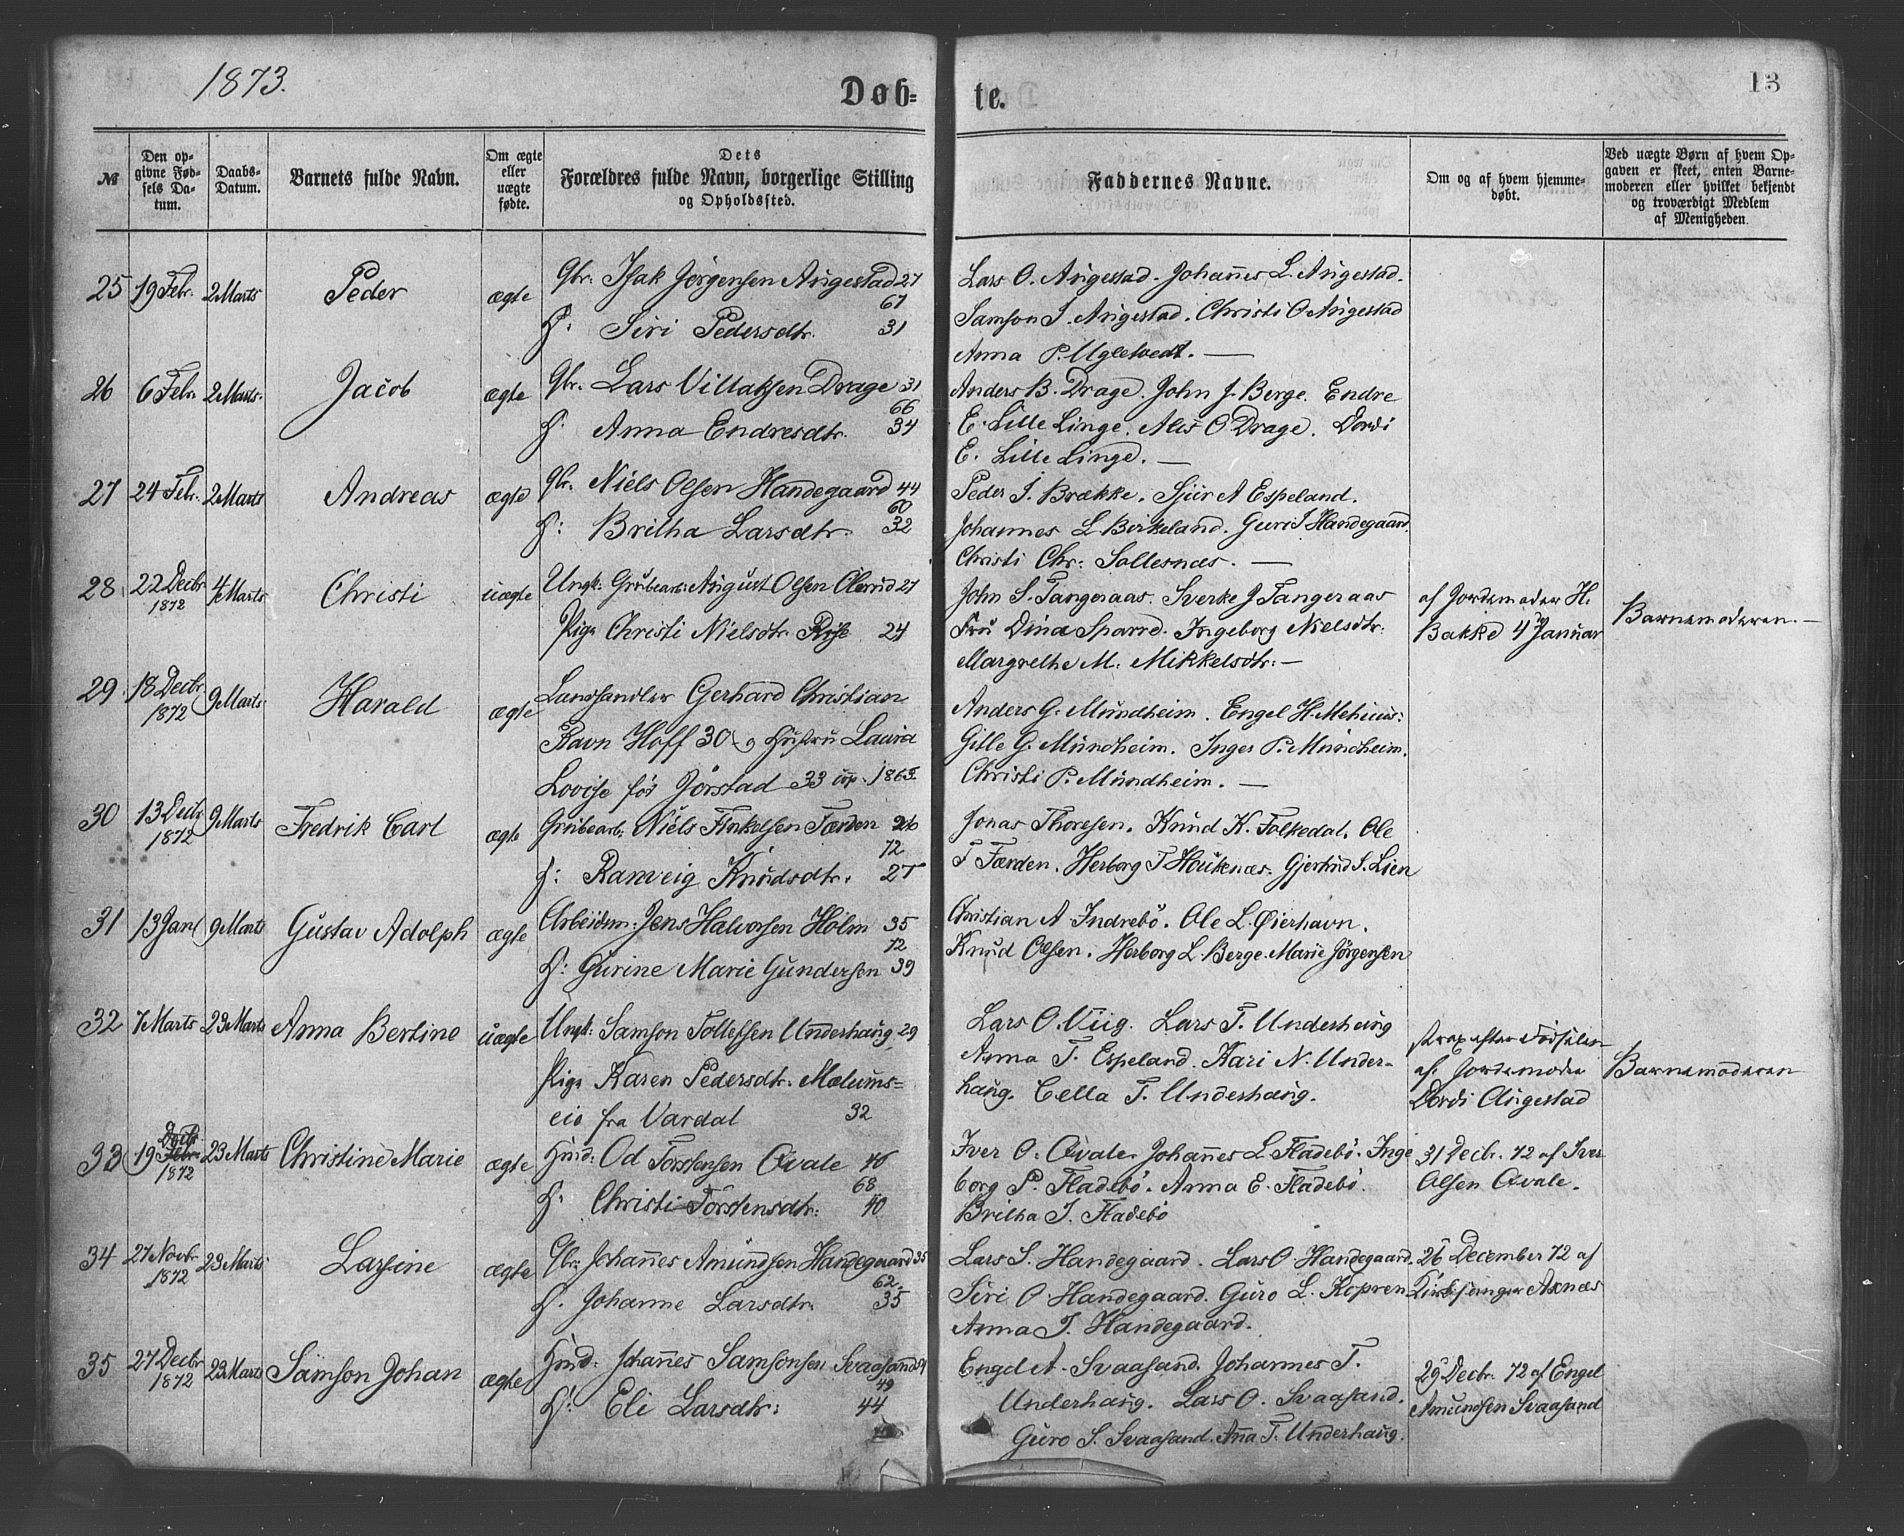 1873.
Døb-
te.
13
№
Den op-
givne Fød-
sels Da-
tum.
Daabs-
Datum.
Barnets fulde Navn.
Om ægte
eller
uægte
fødte.
Dets
Forældres fulde Navn, borgerlige Stilling
og Opholdssted.
Faddernes Navne.
Om og af hvem hjemme-
døbt.
Ved uægte Børn af hvem Op-
gaven er skeet, enten Barne-
moderen eller hvilket bekjendt
og troværdigt Medlem
af Menigheden.
25 19 Febr. 2 Marts Peder ægte Gbr: Isak Jörgensen Augestad 27
67
H: Siri Pedersdtr. 31
Lars O. Augestad. Johannes L. Augestad.
Samson J. Augestad. Christi O Augestad
Anna P. Ugletvedt. —
26 6 Febr. 2 Marts. Jacob ægte Gbr. Lars Villaksen Drage 31
66
H. Anna Endresdtr. 34
Anders B. Drage. John J. Berge. Endre
E. Lille Linge. Alis O Drage. Dordi
E. Lille Linge. —
27 24 Febr. 2 Marts Andreas ægte Gbr. Niels Olsen Handegaard 44
60
H: Britha Larsdtr. 32
Peder J. Brække. Sjur A Espeland.
Johannes L Birkeland. Guri J Handegaard.
Christi Chr: Sallesnæs. —
28 22 Decbr 1872 4 Marts Christi uægte Ungk: Grubearb: August Olsen 27
Pige Christi Nielsdtr. 24
John S. Tangeraas. Sverke J Tangeraas
Fru Dina Sparre. Ingeborg Nielsdtr:
Margrethe M. Mikkelsdtr: —
af Jordemoder H.
Bakke 4 Januar
Barnemoderen. —
29 18 Decbr 1872 9 Marts Harald ægte Landhandler Gerhard Christian
Ravn Hoff 30 og Hustru Laura
Lovise för Jörstad 33
Anders G. Mundheim. Engel H. Mehuus:
Gitle G. Mundheim. Inger P. Mundheim.
Christi P. Mundheim. —
30 13 Decbr 1872 9 Marts Fredrik Carl ægte Grubearb: Niels Færden 26
72
H: Ranveig Knudsdtr. 27
Jonas Thoresen. Knud K. Folkedal. Ole
T Færden. Herborg T Houkenæs. Gjertrud S. Lien
31 13 Jan 9 Marts Gustav Adolph ægte Arbeidsm: Jens Halvorsen Holm 35
72
H: Gurine Marie Gundersen 39
Christian A Indrebö. Ole L. Øierhavn.
Knud Olsen. Herborg L. Berge. Marie Jörgensen
32 7 Marts 23 Marts Anna Bertine uægte Ungk: Samson Tollefsen Underhaug 29
Pige Karen Pedersdtr. Mælums=
eie fra Vardal 32
Lars O. Viig. Lars T. Underhaug
Anna T. Espeland. Kari N. Under-
haug. Cella T. Underhaug.
strax efter Födselen
af Jordemoder
Dordi Augestad
Barnemoderen
33 19 Decbr 1872 23 Marts Christine Marie ægte Husd: Od Torstensen Qvale 46
68
H. Christi Torstensdtr: 40
Iver O. Qvale. Johannes L. Fladebö. Inge
borg P. Fladebö. Anna E. Fladebö.
Britha J. Fladebö
31 Decbr. 72 af Iver
Olsen Qvale.
34 27 Novbr 1872 23 Marts Larsine ægte Gbr: Johannes Amundsen Handegaard 35
62
H. Johanne Larsdtr. 35
Lars S. Handegaard. Lars O Handegaard.
Siri O Handegaard. Guro L. Kopren
Anna T. Handegaard.
26 December 72 af
Kirkesanger Axnæs
35 27 Decbr 1872 23 Marts Samson Johan ægte Husd: Johannes Samsonsen Svaasand
49
H: Eli Larsdtr: 44
Engel A. Svaasand. Johannes T.
Underhaug. Lars O. Svaasand.
Guro S. Svaasand. Ana T. Underhaug.
29 Decbr. 72 af Engel
Amundsen Svaasand